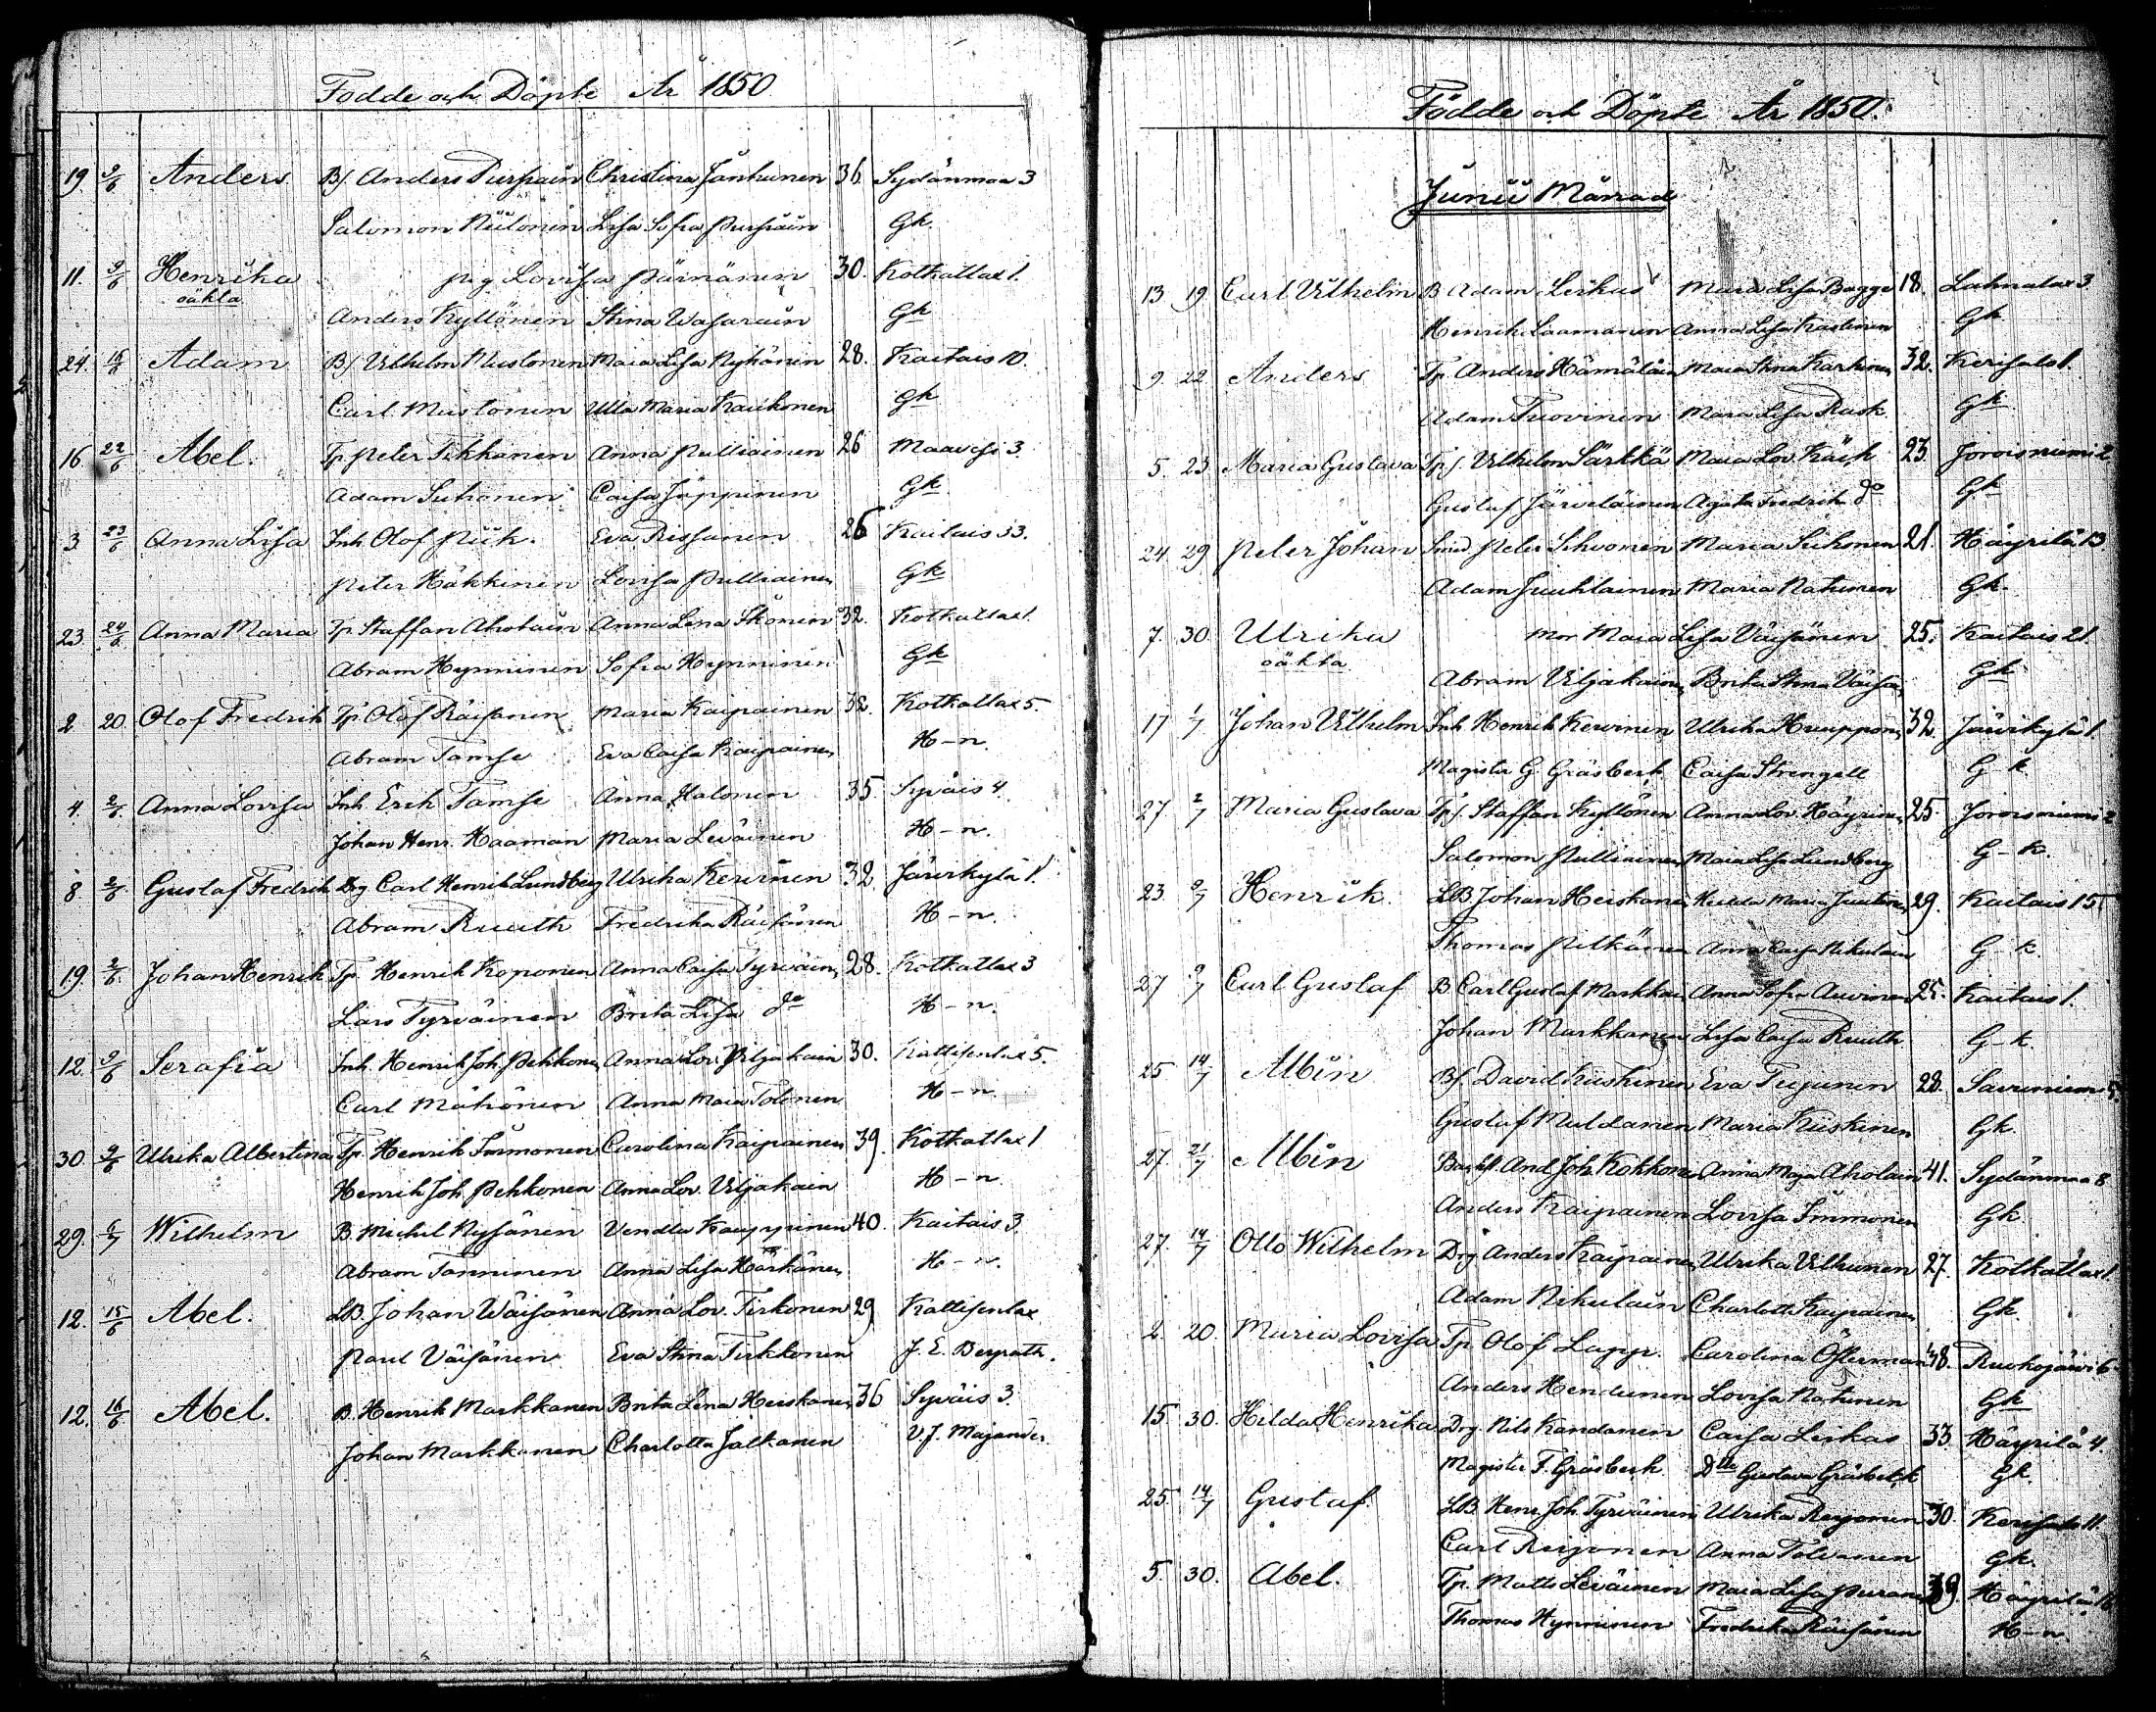 Födde och Döpte År 1850
19 9/6 Anders B/ Anders Purhain Christina Jänhunen 36. Sydänmaa 3
Salomon Niilonen Lisa Sofia Purhiäin Gk.
11. 9/6 Henrika pig Lovisa Pärnänen 30. Kotkatlax 1.
oäkta
Anders Kyllönen Stina Wasarain Gk
24. 16/6 Adam B/ Vilhelm Mustonen Maia Lisa Nykänen 28. Kaitais 10.
Carl Mustonen Ulla Maria Kaukonen Gk
16 22/6 Abel. Tp. Peter Tikkanen Anna Pulliainen 26 Maavesi 3.
Adam Suhonen Caisa Jäppinen Gk
3 23/6 Anna Lisa Inh Olof Piik. Eva Rissanen 26 Kaitais 33.
Peter Häkkinen Lovisa Pulliainen Gk
23 24/6 Anna Maria Tp Staffan Aholain Anna Lena Ikonen 32. Kotkatlax 1.
Abram Hynninen Sofia Hynninen Gk
2 20. Olof Fredrik Tp. Olof Räisänen Maria Kaipainen 32. Kotkatlax 5.
Abram Tamse Eva Caisa Kaipainen H-n.
4. 2/6. Anna Lovisa Inh. Erik Tamse Anna Halonen 35 Syväis 4.
Johan Henr. Haaman Maria Leväinen H-n.
8. 2/6. Gustaf Fredrik Drg Carl Henrik Lundberg Ulrika Kervinen 32 Järvikylä 1.
Abram Ruuth Fredrika Räisänen H-n.
19. 2/6. Johan Henrik Tp. Henrik Koponen Anna Caisa Tyrväin 28. Kotkatlax 3
Lars Tyrväinen Brita Lisa do H-n.
12. 9/6 Serafia Inh. Henrik Joh. Pehkonen Anna Lov. Viljakain 30. Kattisenlax 5.
Carl Mähönen Anna Maia Tolonen H-n.
30. 9/6 Ulrika Albertina Tp. Henrik Immonen Carolina Kaipainen 39. Kotkatlax 1
Henrik Joh. Pehkonen Anna Lov. Viljakain H-n
29. 6/7 Wilhelm B. Michel Nyssönen Vendla Kauppinen 40. Kaitais 3.
Abram Tanninen Anna Lisa Härkönen H-n.
12. 15/6 Abel. LB. Johan Wäisänen Anna Lov. Tirkonen 29 Kattisenlax
Paul Väisänen Eva Stina Tirkkonen J. E. Bergrath.
12. 16/6 Abel. B. Henrik Markkanen Brita Lena Heiskanen 36 Syväis 3.
Johan Markkanen Charlotta Jalkanen V. J. Majander.
Födde och Döpte År 1850.
Junii Månad
13 19 Carl Vilhelm B Adam Leskus Maria Lisa Bagge 18. Lahnalax 3
Henrik Laamanen Anna Lisa Kaslinen Gk
9. 22 Anders Tp. Anders Hämäläin Maia Stina Karhinen 32. Kerisalo 1.
Adam Tuovinen Maia Lisa Rask Gk
5. 23 Maria Gustava Tp/. Vilhelm Särkkä Maia Lov. Käck 23. Joroisniemi 2
Gustaf Järveläinen Agata Fredrik do Gk
24 29 Peter Johan Smed Peter Sihvonen Maria Suhonen 21. Häyrilä 13
Adam Juuhlainen Maria Natunen Gk.
7. 30. Ulrika Mor Maia Lisa Väisänen 25. Kaitais 21.
oäkta
Abram Viljakainen Brita Stina Väisän Gk
17 1/7 Johan Vilhelm Inh Henrik Kervinen Ulrika Huuppon 32. Järvikylä 1.
Magister G. Gråsberk Caisa Strengell G-k.
27 2/7 Maria Gustava Tp/. Staffan Kyllönen Anna Lov. Häyrinen 25. Joroisniemi 2
Salomon Pulliainen Maia Lisa Lundberg G-k.
23. 9/7 Henrik. LB. Johan Heiskanen Hedda Maria Juutinen 29. Kaitais 15
Thomas Pitkänen Anna Caisa Nikulain G-k.
27 9/7 Carl Gustaf B. Carl Gustaf Markkain Anna Sofia Auvinen 25. Kaitais 1.
Johan Markkanen Lisa Caisa Ruuth G-k.
25 14/7 Albin B/. David Kiiskinen Eva Tujunen 28. Savuniemi 5.
Gustaf Muldanen Maria Kiiskinen Gk.
27. 21/7 Albin And Joh Kokkonen Anna Maja Aholain 41. Sydänmaa 8
Anders Kaipainen Lovisa Immonen Gk
27. 14/7 Otto Wilhelm Drg Anders Kaipainen Ulrika Vilhunen 27. Kotkatlax 1.
Adam Nikulain Charlotta Kaipainen Gk.
2. 20. Maria Lovisa Tp. Olof Lapp. Carolina Österman 48. Ruokojärvi 6
Anders Hendunen Lovisa Natunen Gk
15 30. Hilda Henrika Drg. Nils Kandanen Caisa Leskas 33. Häyrilä 4.
Magister F. Gråsberk Dlle Gustava Gråsberk Gk.
25. 14/7 Gustaf. LB. Henr. Joh. Tyrväinen Ulrika Reijonen 30. Kerisalo 11.
Carl Reijonen Anna Tolvanen Gk.
5. 30. Abel. Tp. Matts Leväinen Maia Lisa Puranen 39. Häyrilä 16
Thomas Hynninen Fredrika Räisänen H-n.